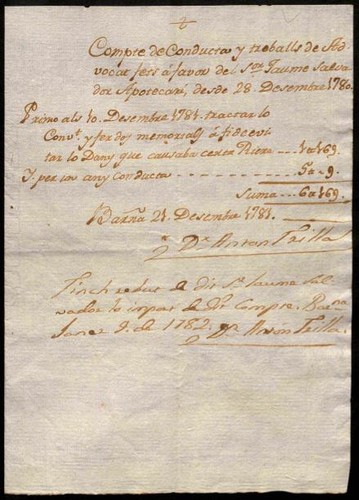 Compte de Conducta y treballs de Ad-
vocat fets á favor del Sor Jaume Salva-
dor Apotecari, desde 28. Desembre 1780.
Primo als 10. Desembre 1781. tractar lo
Convt. y fer dos memorials á fi de evi-
tar lo Dany que causaba certa Riera 1 16 9.
Y. per un any Conducta 5 9.
Suma 6 16 9.
Barña 21. Desembre 1781.
Dr. Anton Trilla
Tinch rebut de dit Sr. Jaume Sal-
vador lo import de dit Compte. Barna
Janer 9. de 1782. Dr. Anton Trilla.